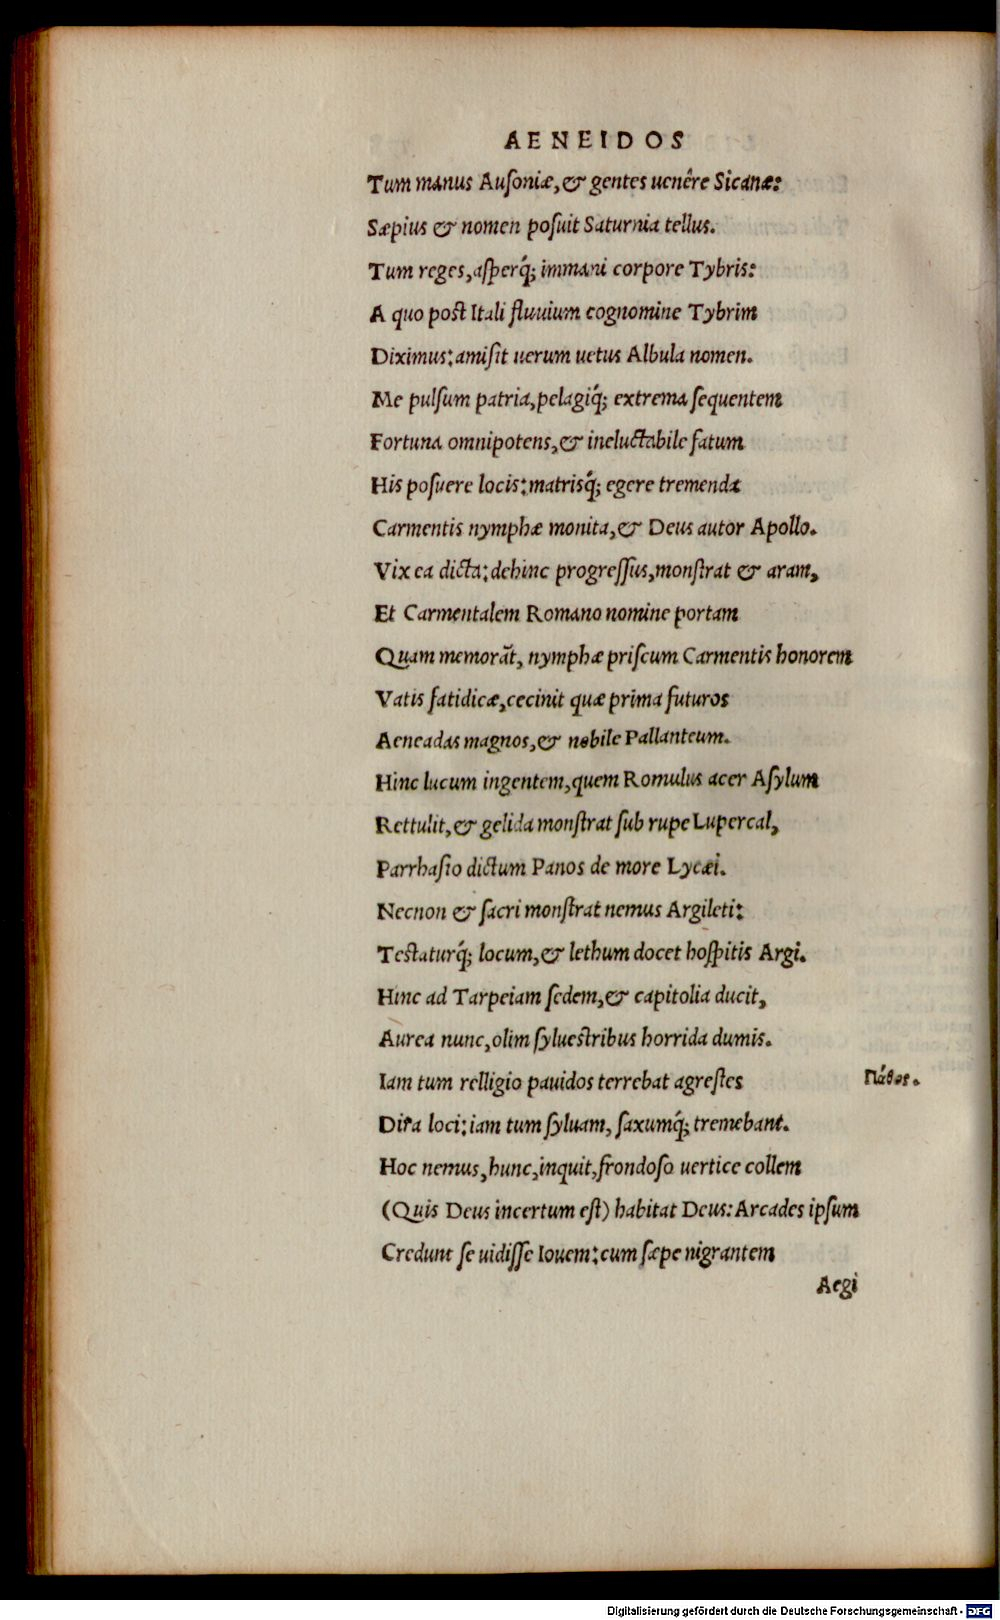 AENEIDOS
Tum manus Auſoniæ, & gentes uenêre Sicanæ:
Sæpius & nomen poſuit Saturnia tellus.
Tum reges, aſperq́; immani corpore Tybris:
A quo poſt Itali fluuium cognomine Tybrim
Diximus: amiſit uerum uetus Albula nomen.
Me pulſum patria, pelagiq́; extrema ſequentem
Fortuna omnipotens, & ineluctabile fatum
His poſuere locis: matrisq́; egere tremenda
Carmentis nymphæ monita, & Deus autor Apollo.
Vix ea dicta: dehinc progreſſus, monſtrat & aram,
Et Carmentalem Romano nomine portam
Quam memorãt, nymphæ priſcum Carmentis honorem
Vatis fatidicæ, cecinit quæ prima futuros
Aeneadas magnos, & nobile Pallanteum.
Hinc lucum ingentem, quem Romulus acer Aſylum
Rettulit, & gelida monſtrat ſub rupe Lupercal,
Parrhaſio dictum Panos de more Lycæi.
Necnon & ſacri monſtrat nemus Argileti:
Teſtaturq́; locum, & lethum docet hoſpitis Argi.
Hinc ad Tarpeiam ſedem, & capitolia ducit,
Aurea nunc, olim ſylueſtribus horrida dumis.
Iam tum relligio pauidos terrebat agreſtes
Πάθος.
Dira loci: iam tum ſyluam, ſaxumq́; tremebant.
Hoc nemus, hunc, inquit, frondoſo uertice collem
(Quis Deus incertum eſt) habitat Deus: Arcades ipſum
Credunt ſe uidiſſe Iouem: cum ſæpe nigrantem
Aegi
Digitalisierung gefördert durch die Deutsche Forschungsgemeinschaft - DFG